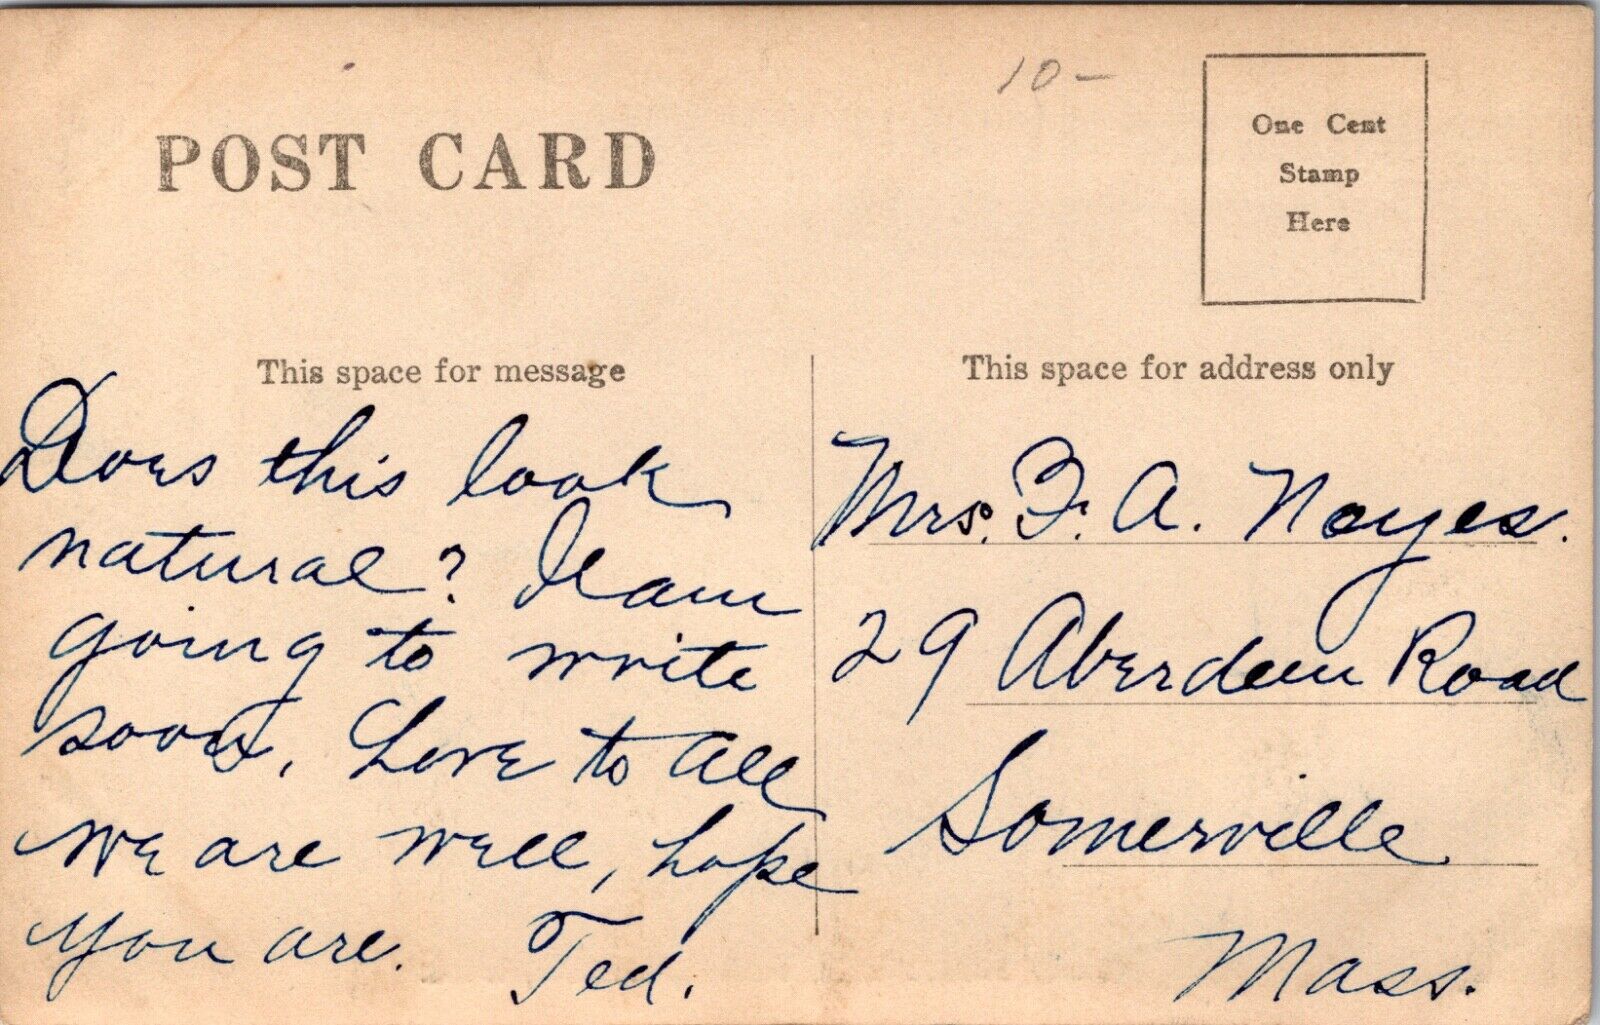 10-
POST CARD
One Cent
Stamp
Here
This space for message
Does this look
natural? I am
going to write
soon, Love to all
we are well, hope
you are. Ted.
This space for address only
Mrs. F. A. Noyes.
29 Aberdeen Road
Somerville
Mass.